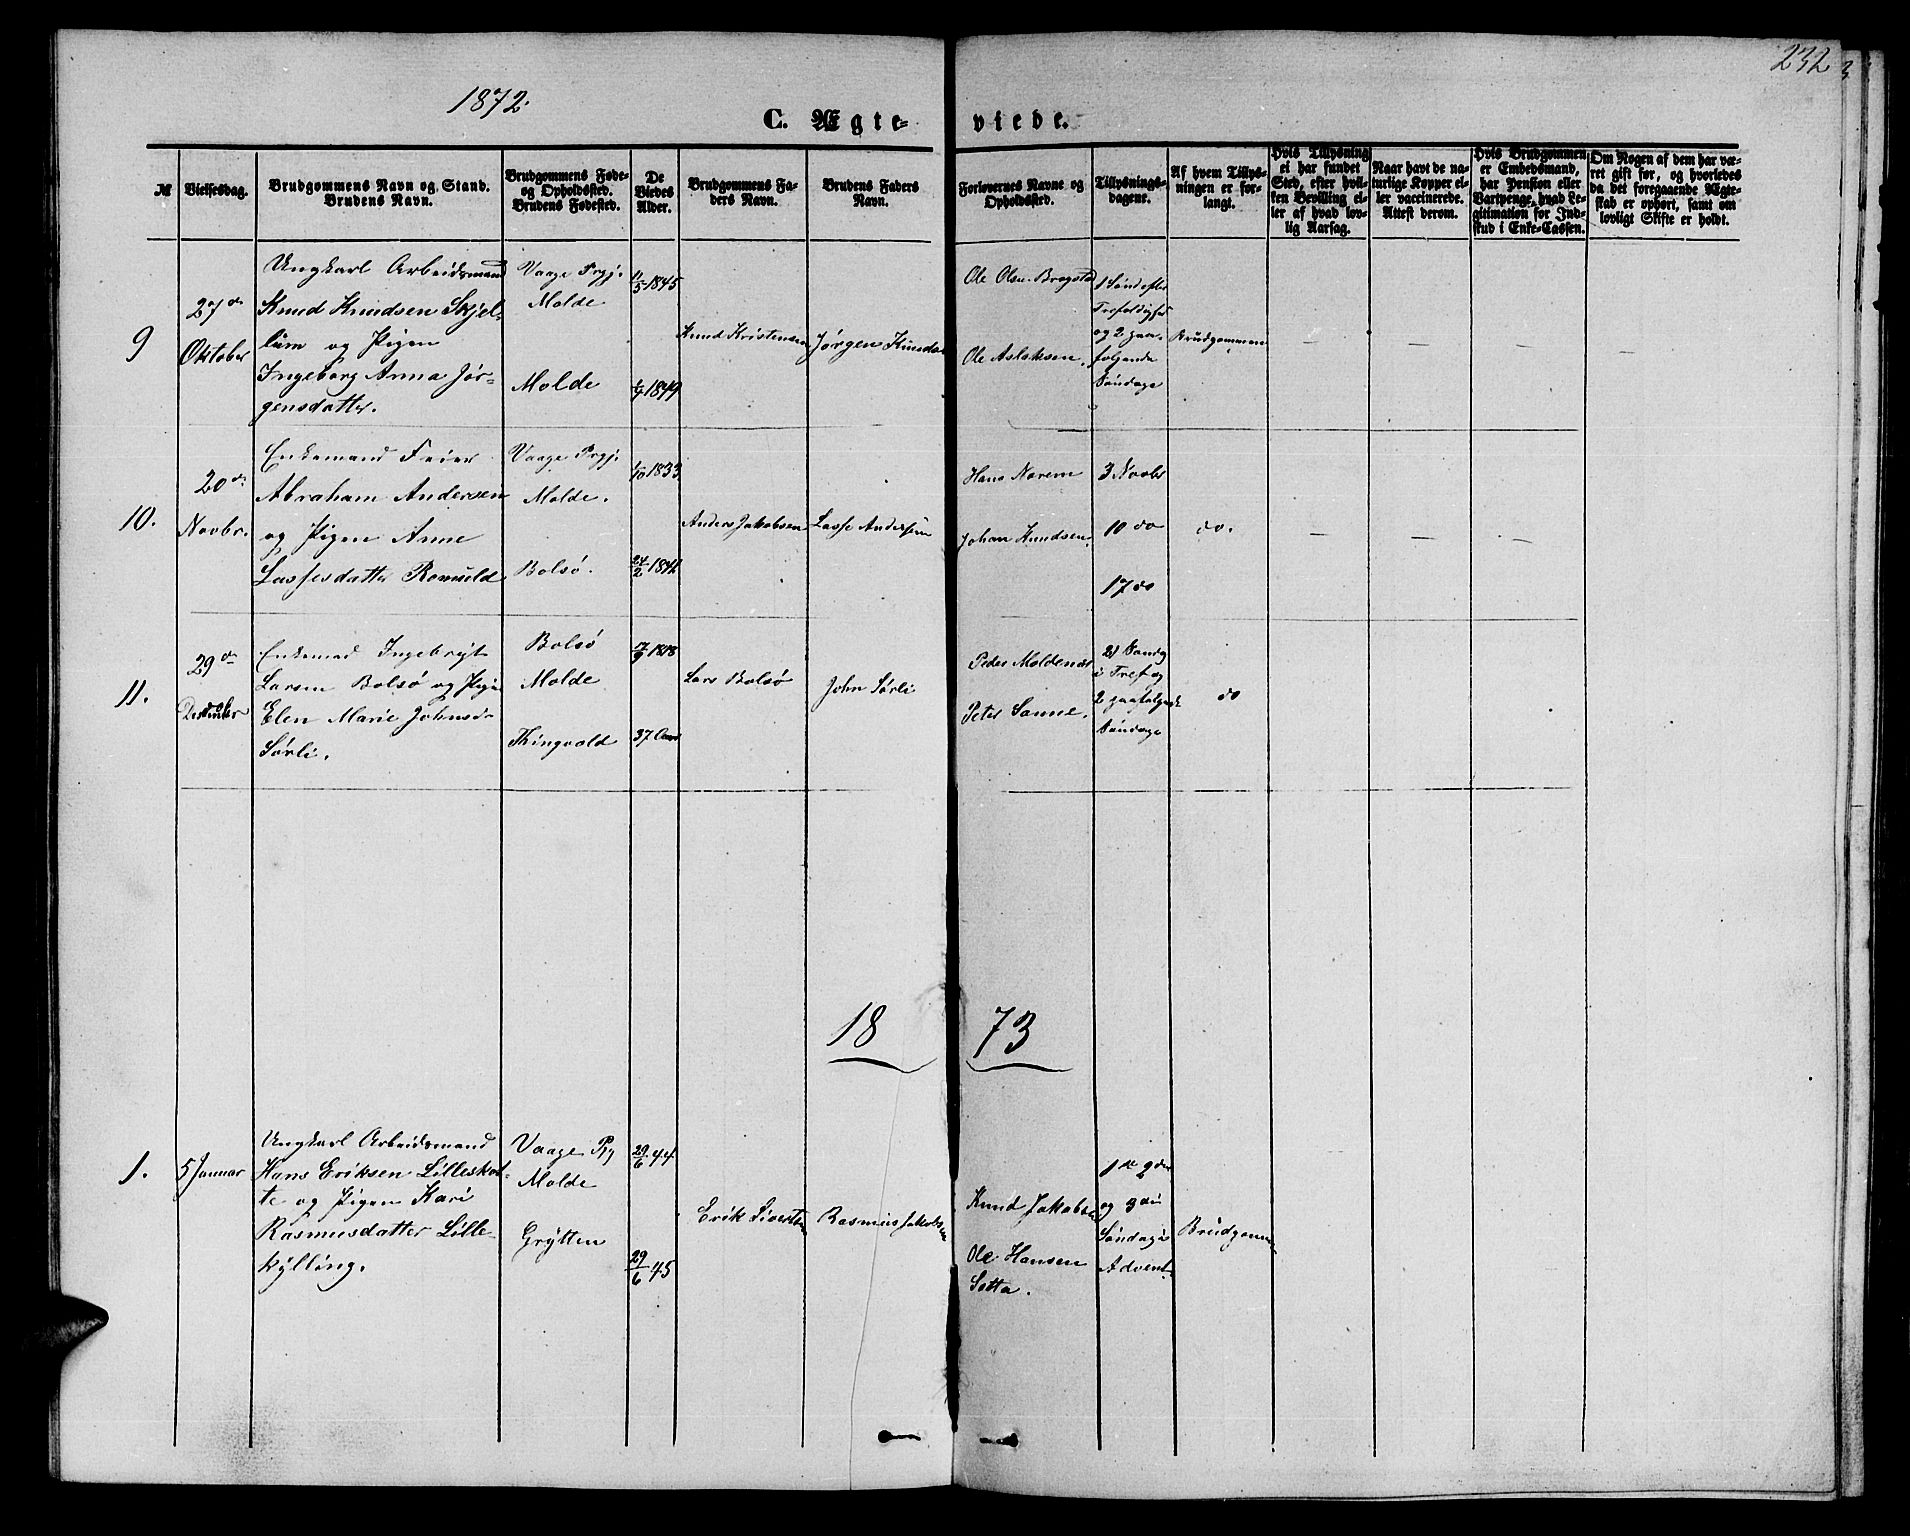 232
1872.
C. Ægte-
viede.
№
Vielsesdag.
Brudgommens Navn og Stand.
Brudens Navn.
Brudgommens Føde-
og Opholdssted.
Brudens Fødested.
De
Viedes
Alder.
Brudgommens Fa-
ders Navn.
Brudens Faders
Navn.
Forlovernes Navne og
Opholdssted.
Tillysnings-
dagene.
Af hvem Tillys-
ningen er for-
langt.
Hvis Tillysning
ei har fundet
Sted, efter hvil-
ken Bevilling el-
ler af hvad lov-
lig Aarsag.
Naar havt de na-
turlige Kopper el-
ler vaccinerede.
Attest derom.
Hvis Brudgommen
er Embedsmand,
har Pension eller
Vartpenge, hvad Le-
gitimation for Ind-
skud i Enke-Cassen.
Om Nogen af dem har væ-
ret gift før, og hvorledes
da det foregaaende Ægte-
skab er ophørt, samt om
lovligt Skifte er holdt.
9
27de
Oktober
Ungkarl Arbeidsmand
Knud Knudsen Skjel-
lum og Pigen
Ingeborg Anna Jør-
gensdatter.
Vaage Prgj.
Molde
Molde
11/5 1845
1/4 1849
Knud Kristensen
Jørgen Knudsen
Ole Olsen Bragstad
Ole Aslaksen
1 Sønd efter
Trefoldighed
og 2 paa-
følgende
Søndage
Brudgommen
— — — —
10.
20de
Novbr.
Enkemand Feier
Abraham Andersen
og Pigen Anne
Lassesdatter
Vaage Prgj.
Molde.
Bolsø.
1/10 1833
24/2 1844
Anders Jakobsen
Lasse Andersen
Hans Norem
Johan Knudsen.
3 Novbr
10 do
17 do
do.
— — —
11.
29de
December
Enkemand Ingebrigt
Larsen Bolsø og Pigen
Elen Marie Johnsd.
Sørli.
Bolsø
Molde
Thingvold
17/9 1818
37 Aar
Lars Bolsø
John Sørli
Peder Moldenæs
Peter Sanne.
21 Søndg
i Tref og
2 paafølgende
Søndage
do
18 73
1.
5 Januar
Ungkarl Arbeidsmand
Hans Eriksen Lilleskot-
te og Pigen Kari
Rasmusdatter Lille-
kylling.
Vaage Pg
Molde
Grytten
29/6 44
29/6 45
Erik Sivertsen
Rasmus Jakobsen
Knud Jakobsen
Ole Hansen
Sotta.
1ste 2den
og 3die
Søndag i
Advent.
Brudgommen